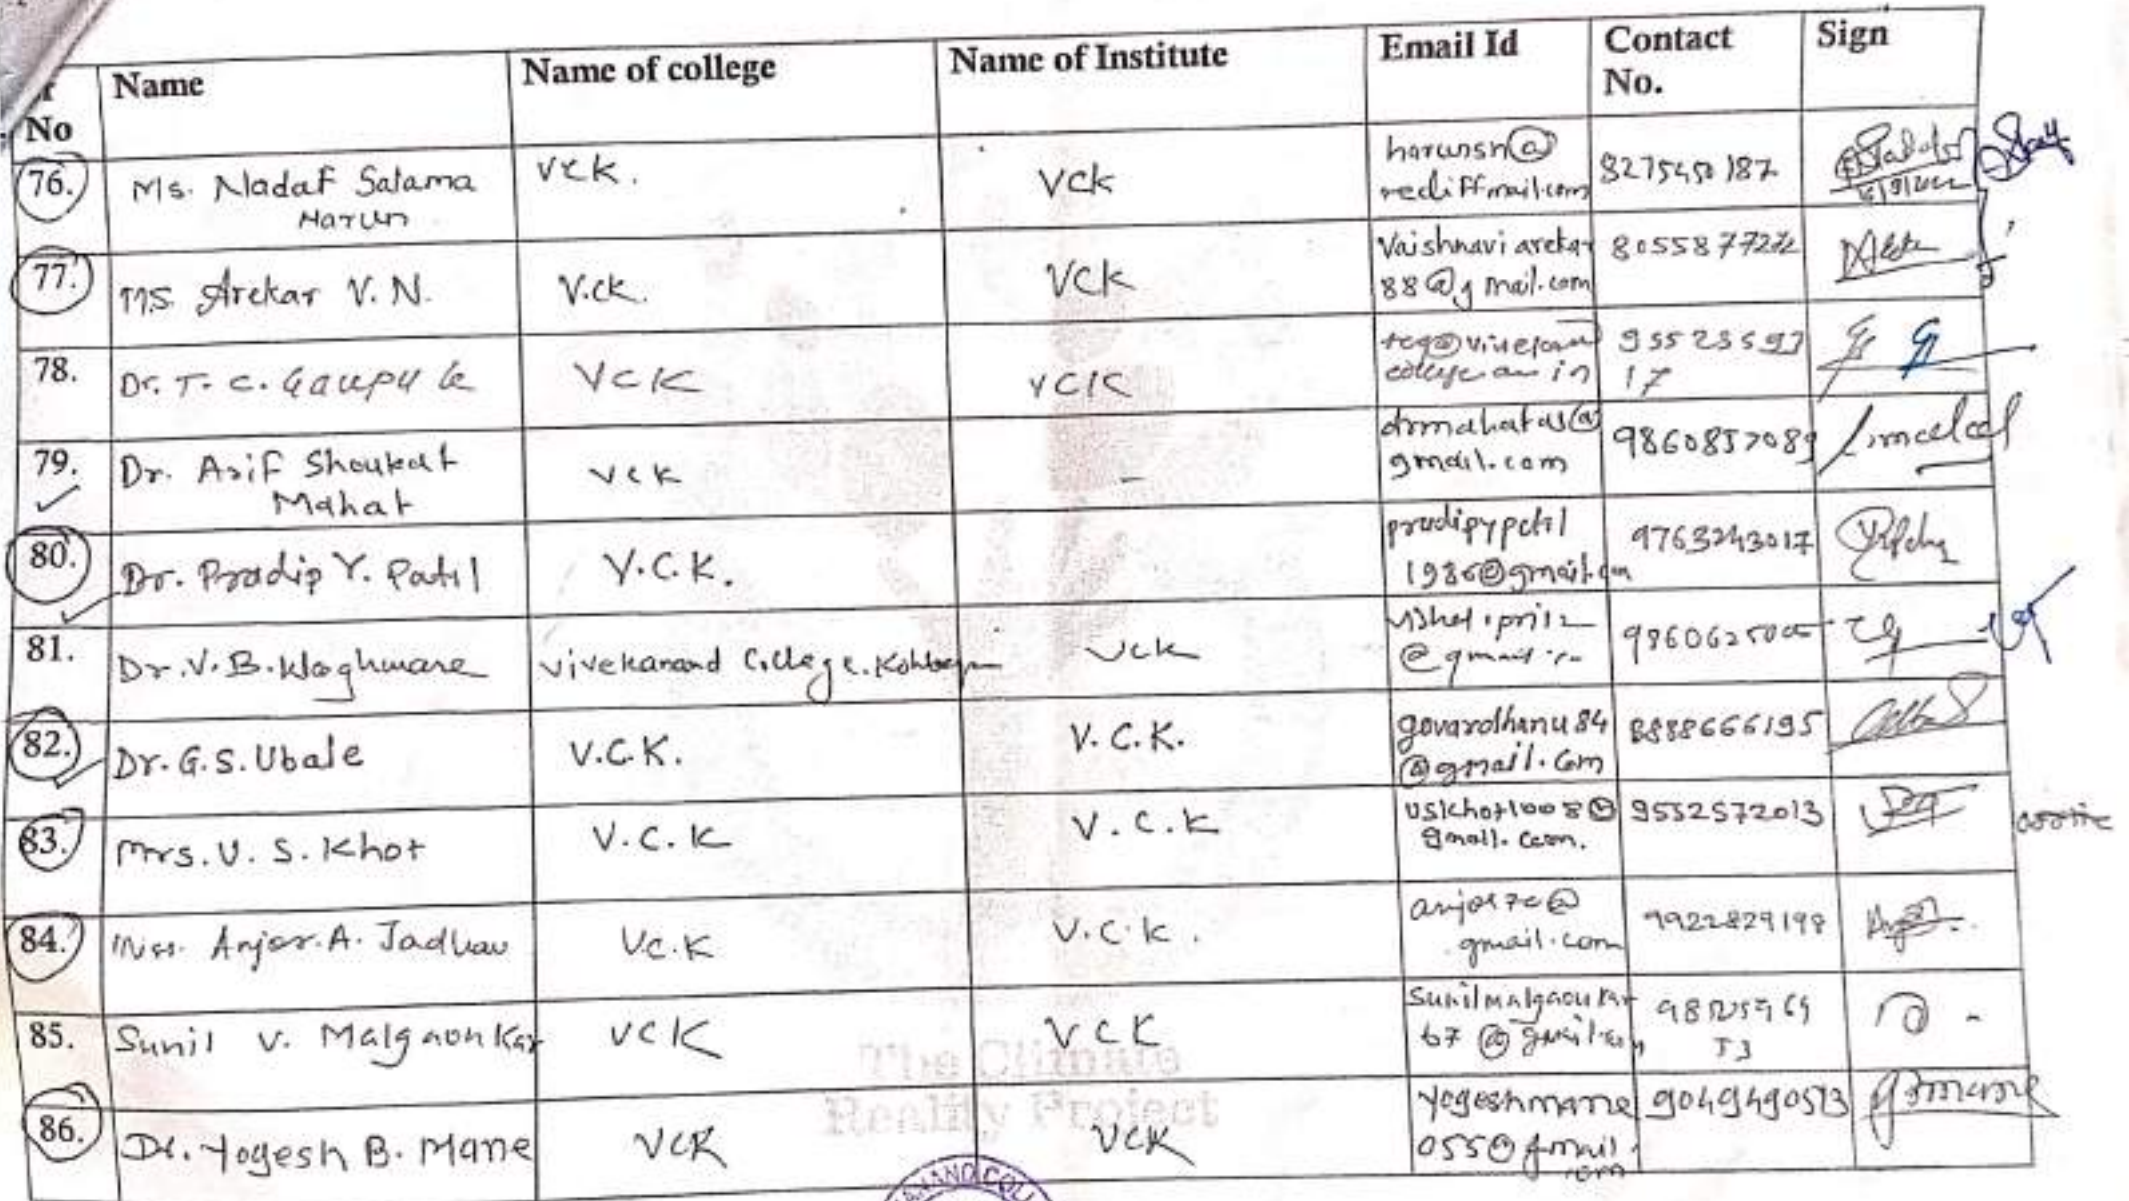 Name Name of college Name of Institute Email Id Contact No. Sign
No
76. Ms. Nadaf Salama Harun VCK. VCK harunsn@ rediffmail.com
77. Ms. Arekar V. N. V.CK. VCK Vaishnavi arekar 88@gmail.com
78. Dr. T. C. VCK VCK
79. Dr. Asif Shoukat Mahat VCK - drmahatas@ gmail.com 9860857089
80. Dr. Pradip Y. Patil V.C.K. pradipypatil 1986@gmail.com 9763243017
81. Dr. V. B. Waghmare Vivekanand College. VCK
82. Dr. G. S. Ubale V.C.K. V.C.K. govardhanu84 @gmail.com 8888666195
83. Mrs. U. S. Khot V.C.K V.C.K uskhot1008@ gmail.com. 9552572013
84. Anjor. A. Jadhav VC.K V.C.K. gmail.com 9922829198
85. Sunil V. Malgaonkar VCK VCK sunilmalgaonkar 67@gmail.com
86. Dr. Yogesh B. Mane VCK VCK yogeshmane 055@gmail.com 9049490513
The Climate
Reality Project